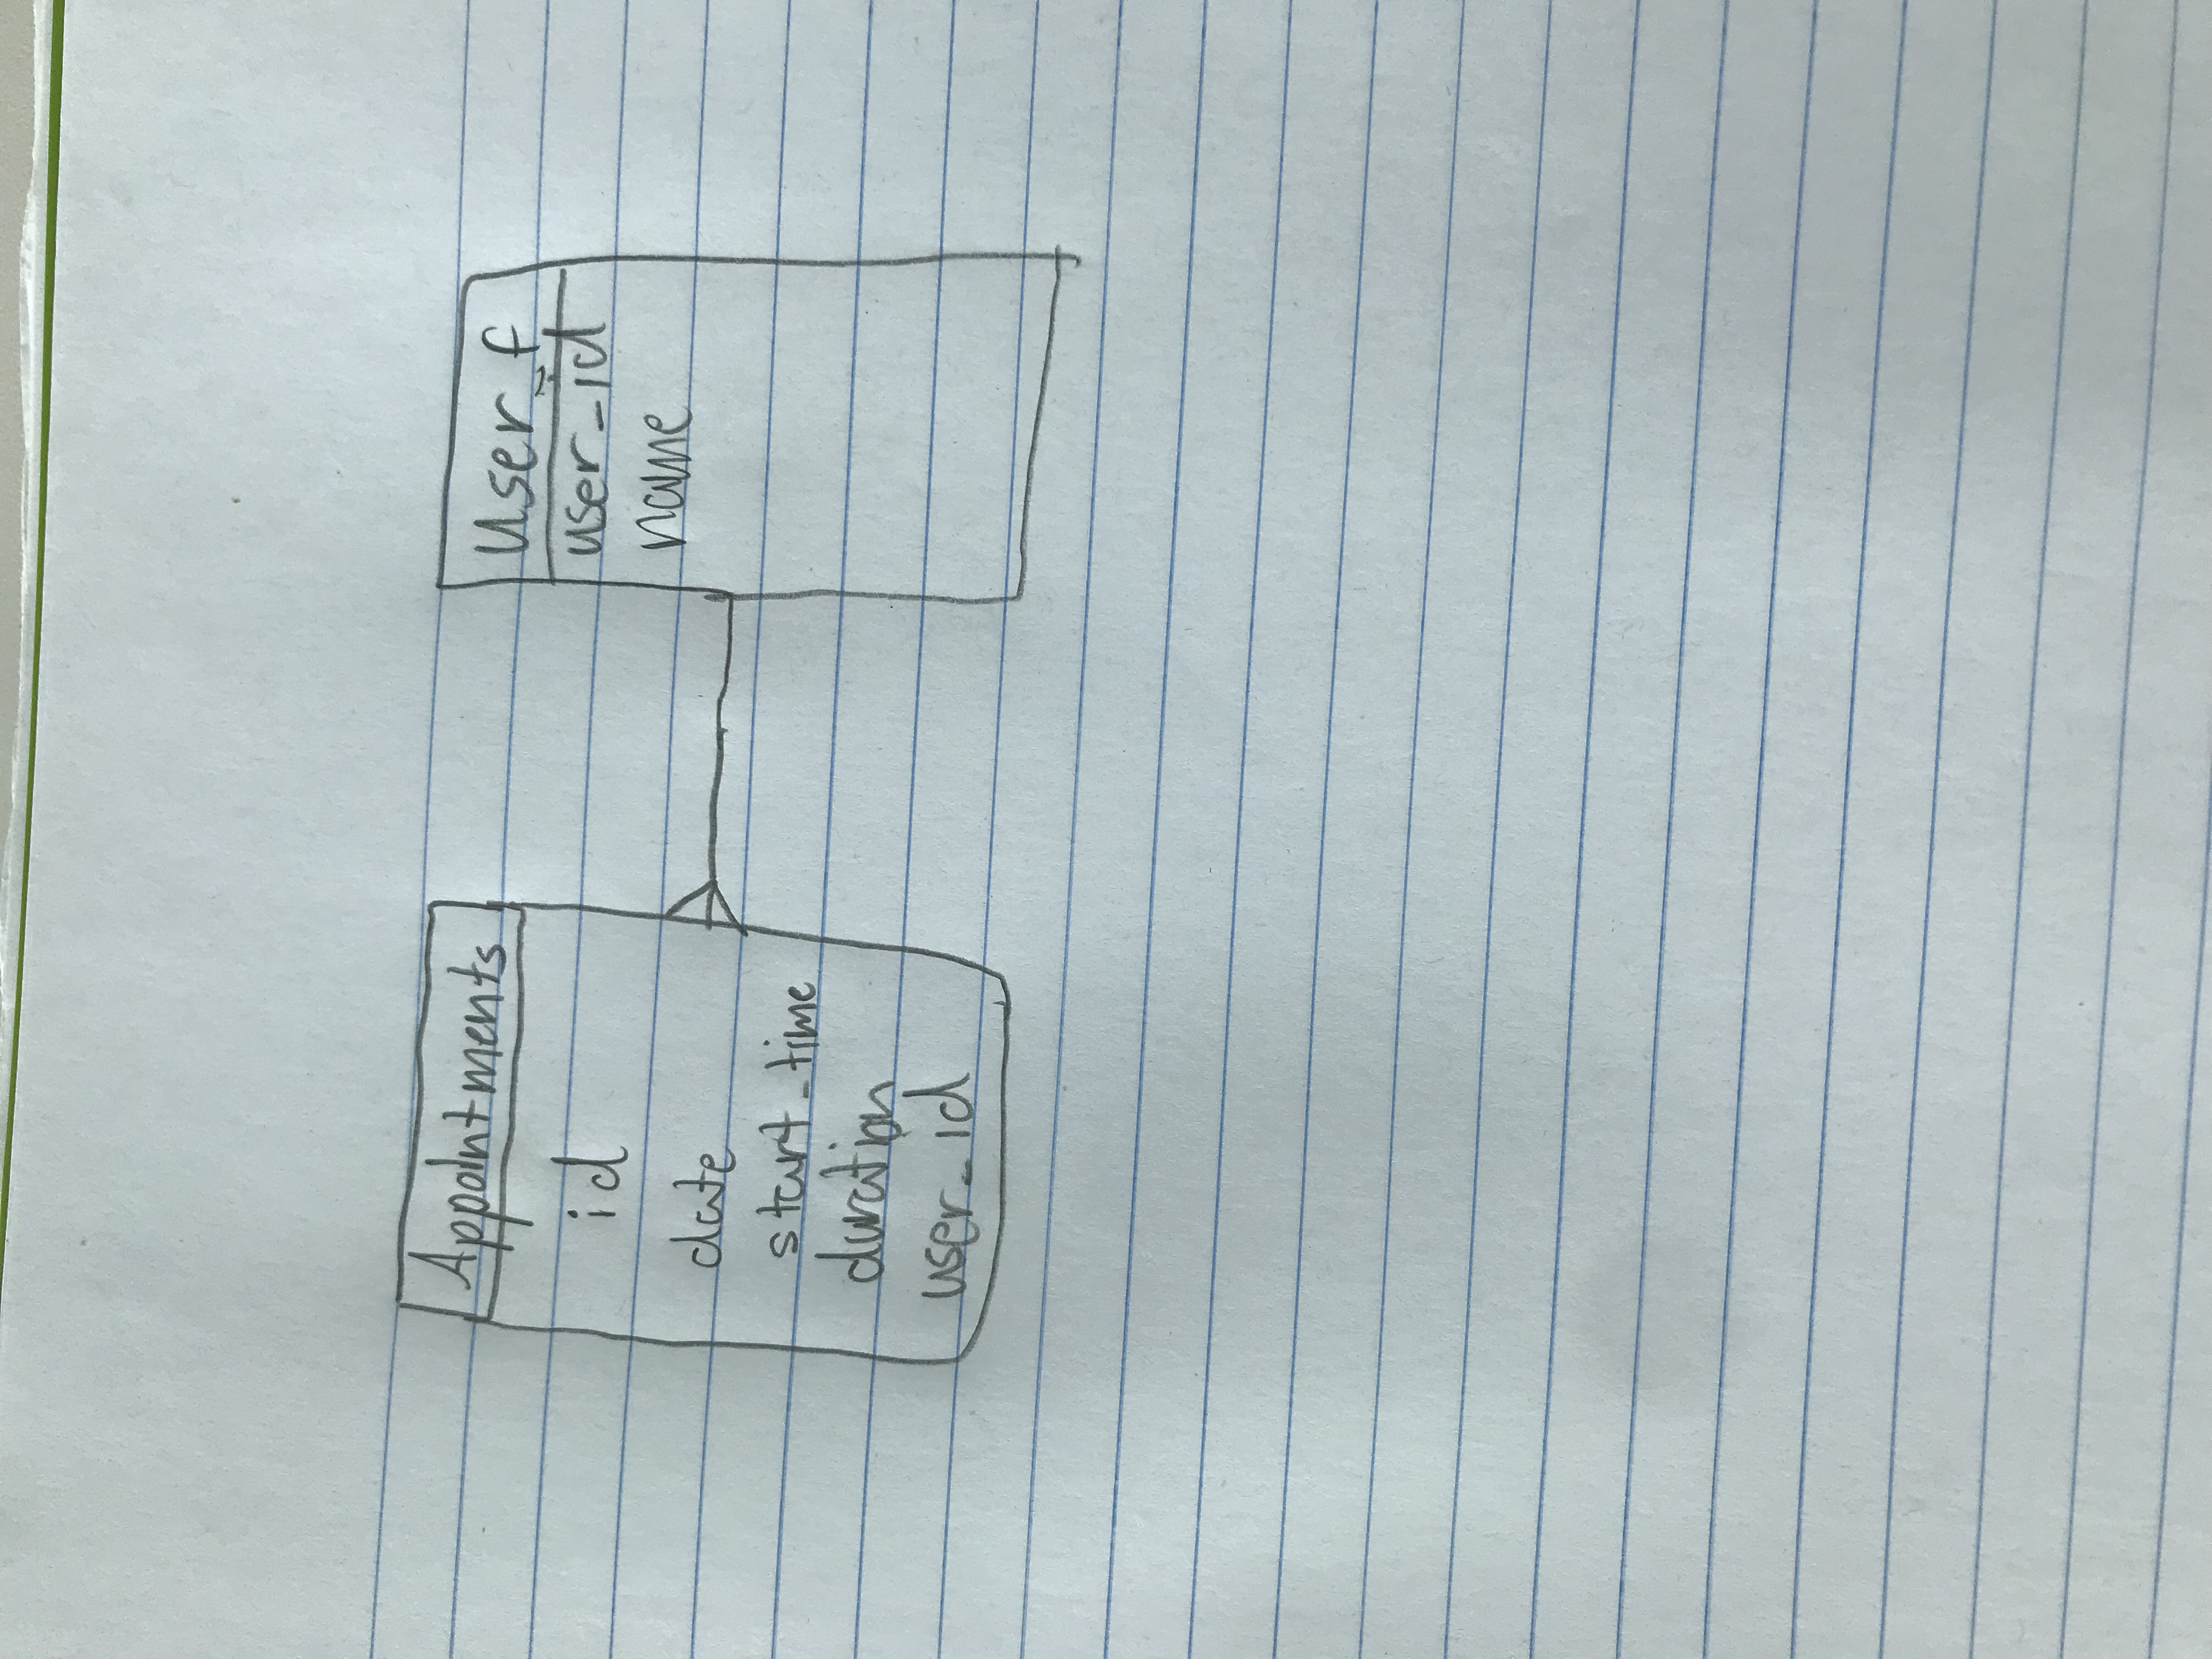 Appointments
id
date
start_time
duration
user_id
User_f
user_id
name